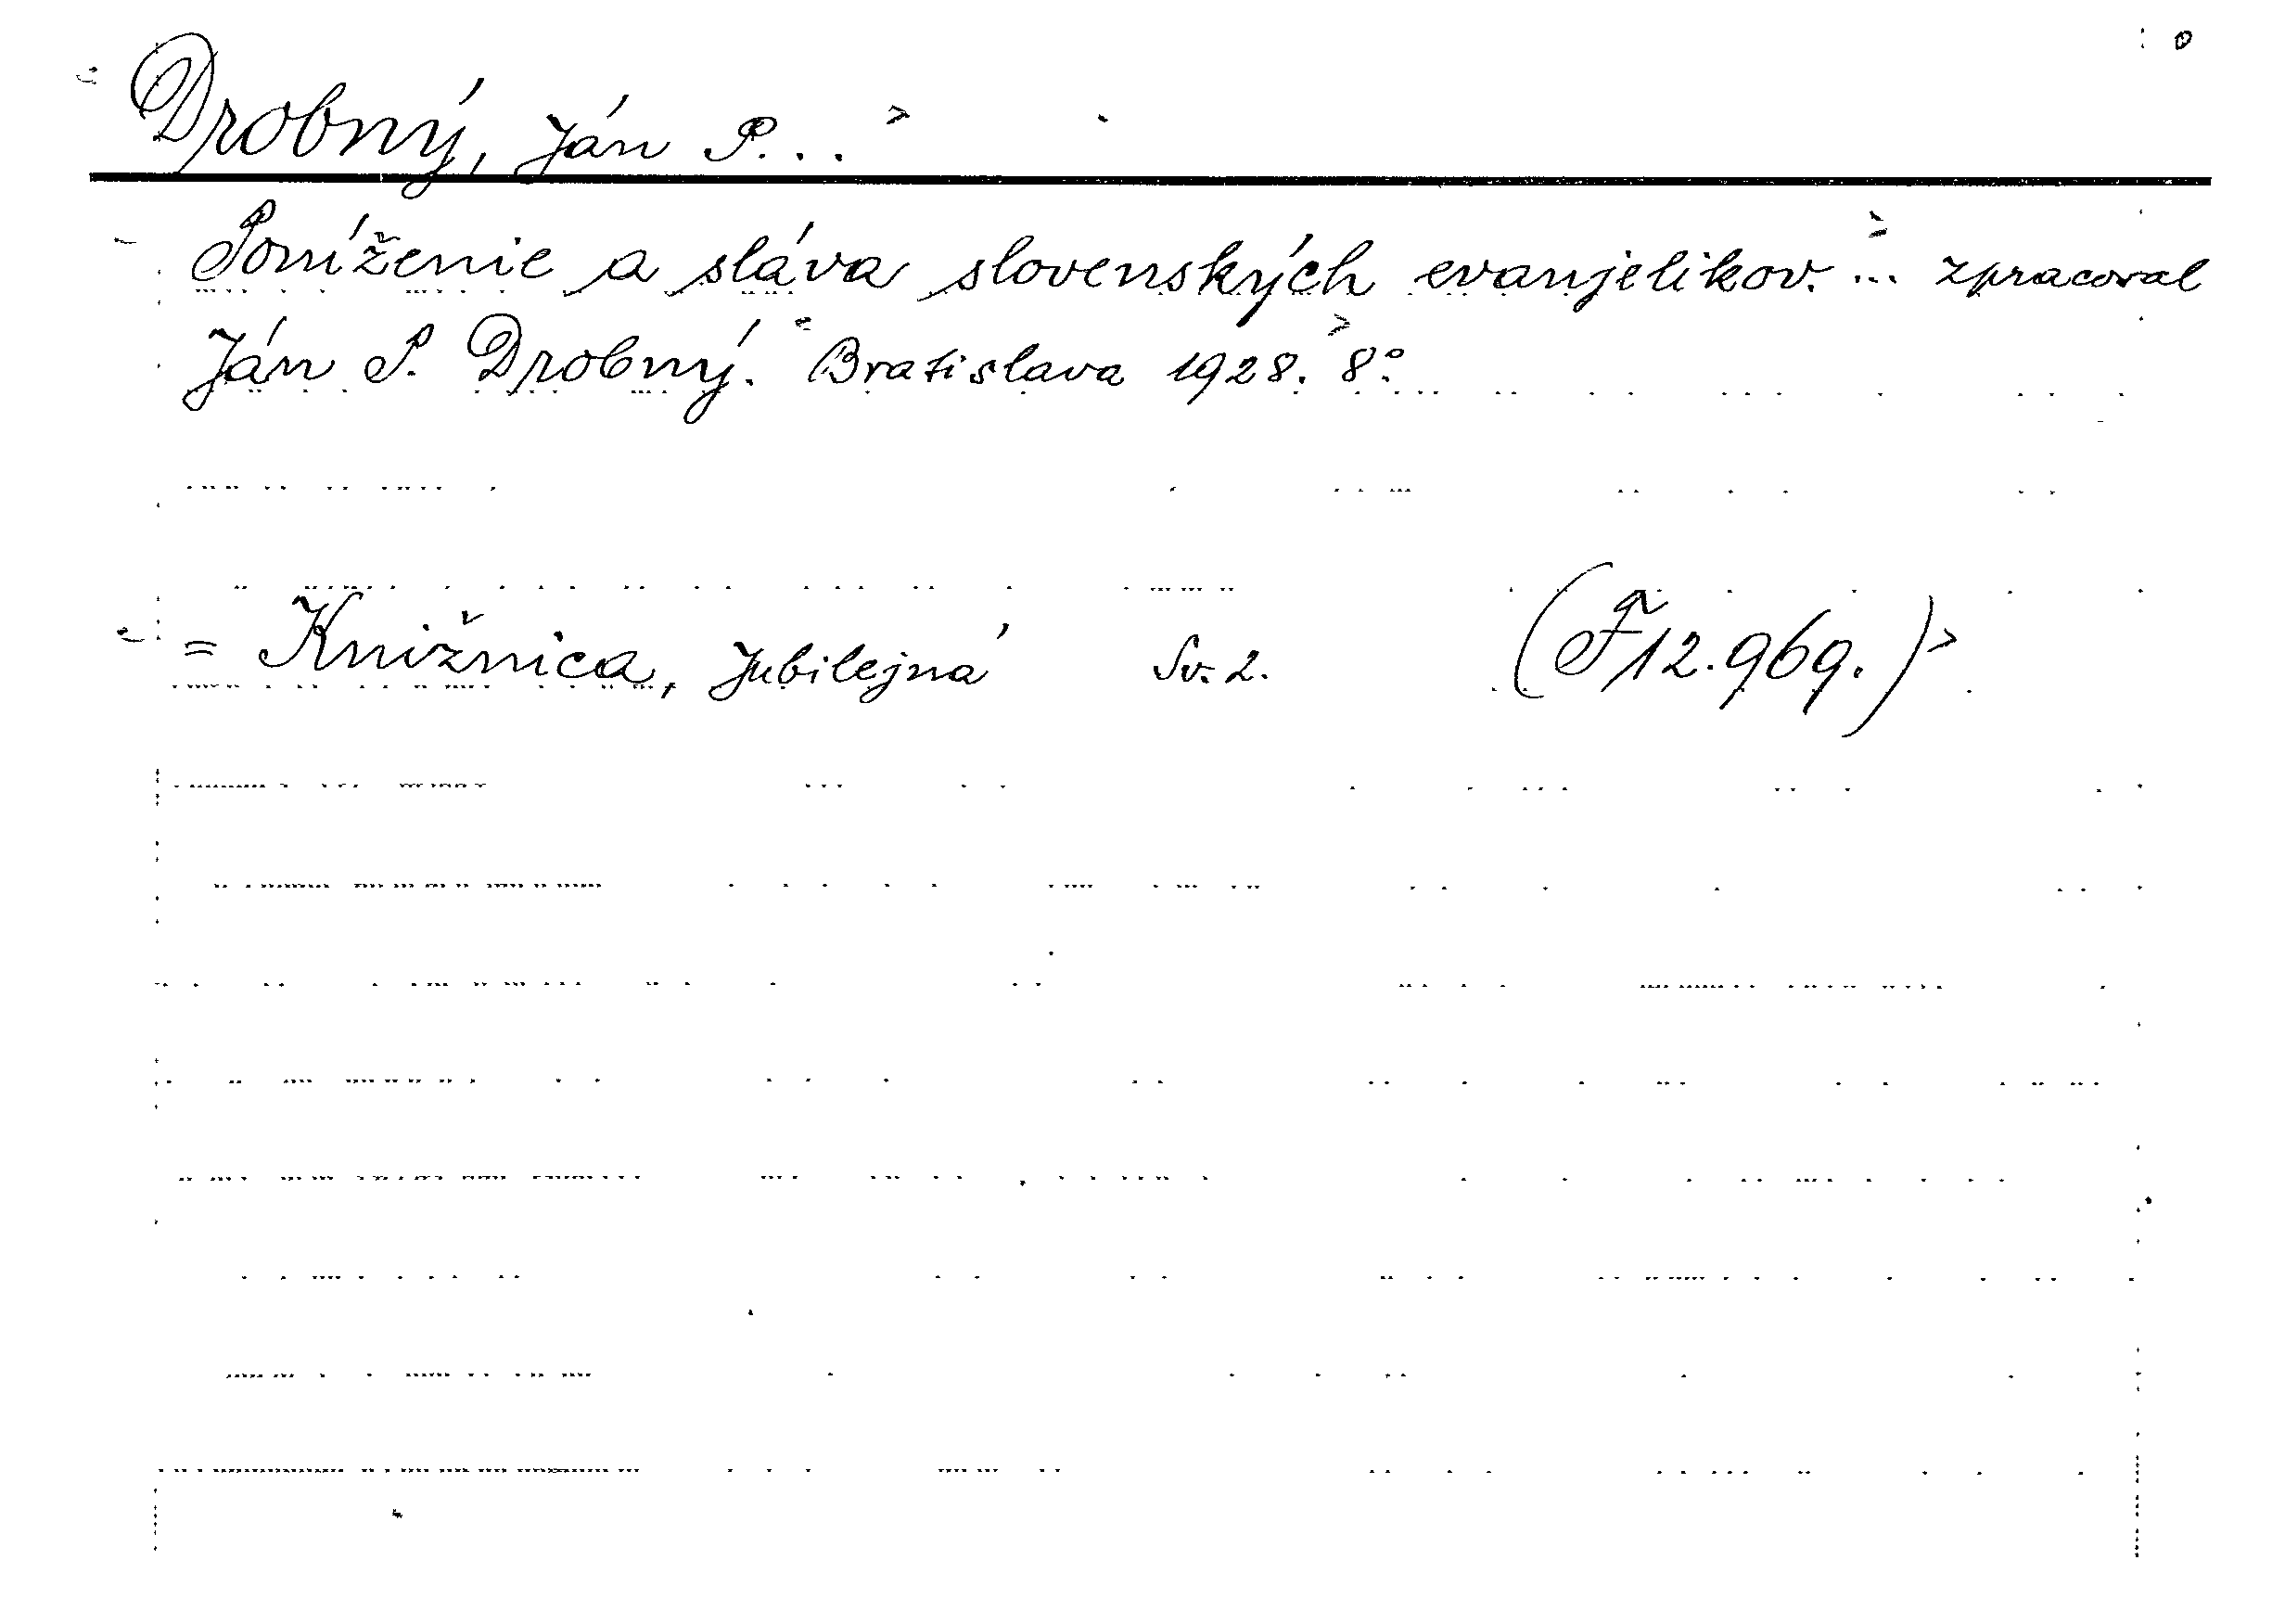 Drobný, Ján P...
Poníženie a sláva slovenských evanjelikov. ... zpracoval
Ján P. Drobný. Bratislava 1928. 8°.
= Knižnica, Jubilejná Sv. 2. (F 12.969.)